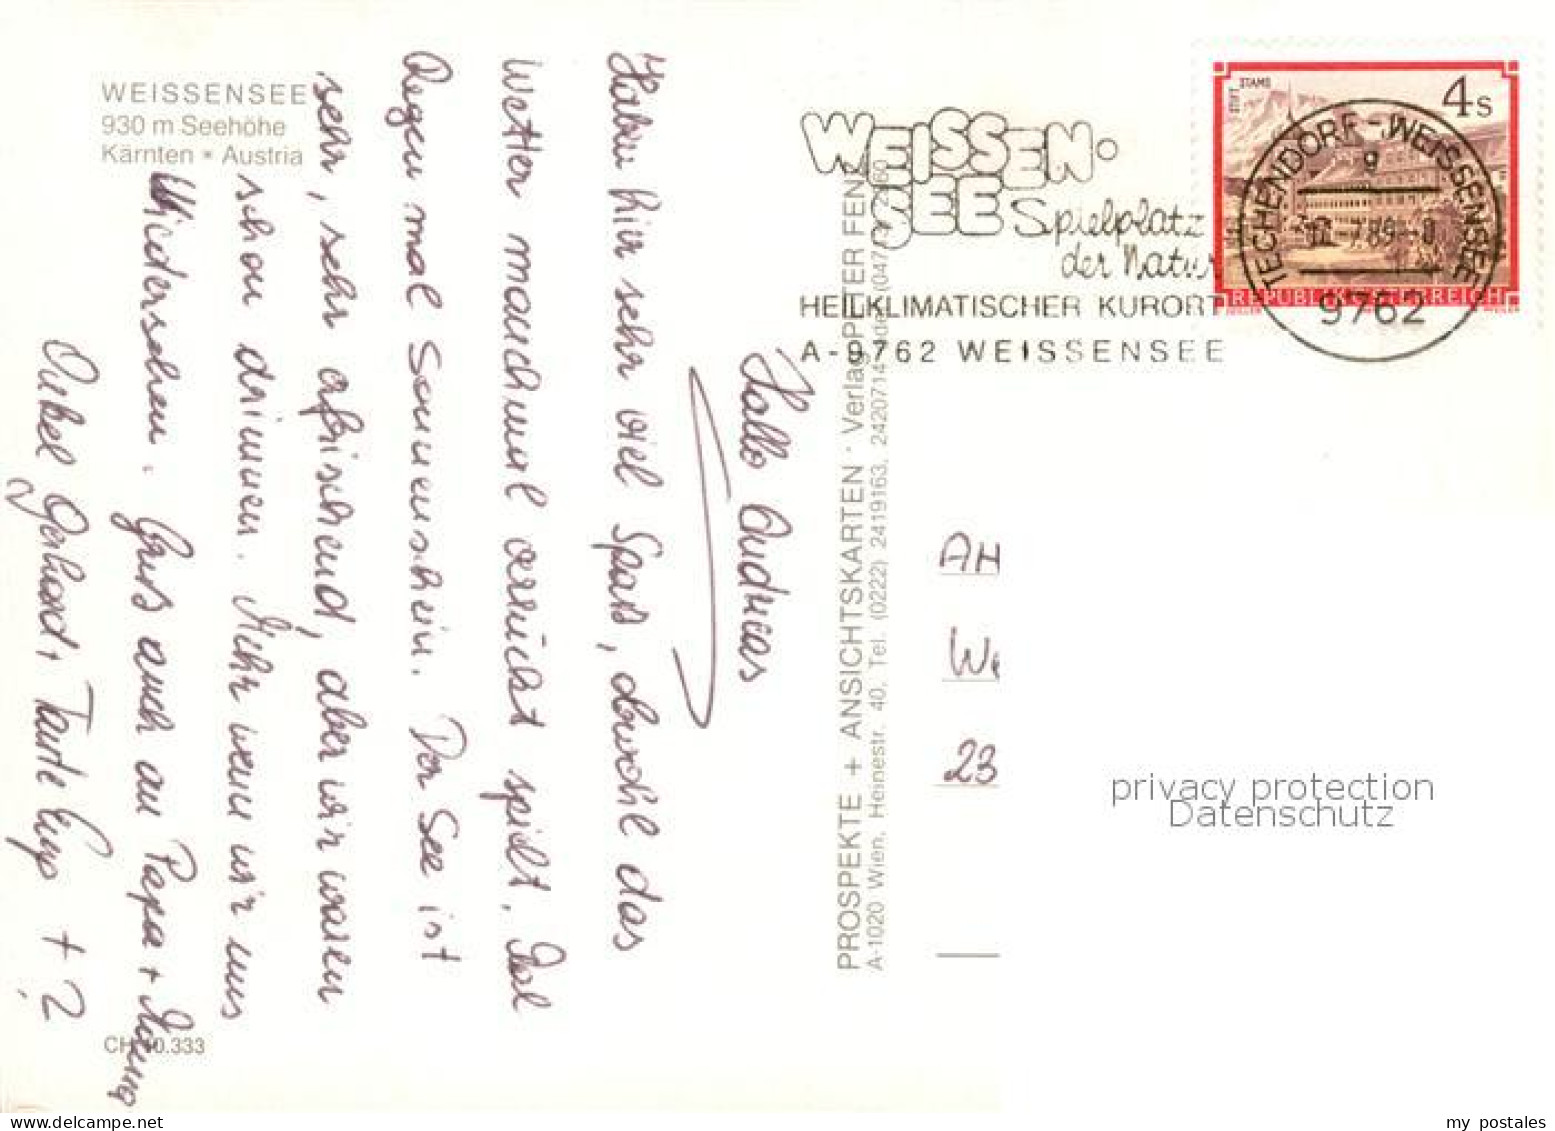 WEISSENSEE
930 m Seehöhe
Kärnten * Austria
Hallo Andreas
Habn hier sehr viel Spaß, obwohl das
Wetter manchmal verrückt spielt. Mal
Regen mal Sonnenschein. Der See ist
sehr, sehr erfrischend, aber wir waren
schon drinnen. Mehr wenn wir uns
Wiedersehen. Gruß auch an Papa + Mama
Onkel Gerhard, Tante + ?
CH 40.333
PROSPEKTE + ANSICHTSKARTEN · Verlag PETER FEN
A-1020 Wien, Heinestr. 40, Tel. (0222) 2419163, 2420714
WEISSEN-
SEE Spielplatz
der Natur
HEILKLIMATISCHER KURORT
A-9762 WEISSENSEE
STIFT STAMS
4 S
REPUBLIK ÖSTERREICH
TECHENDORF-WEISSENSEE
9762
AH
We
23
privacy protection
Datenschutz
my postales